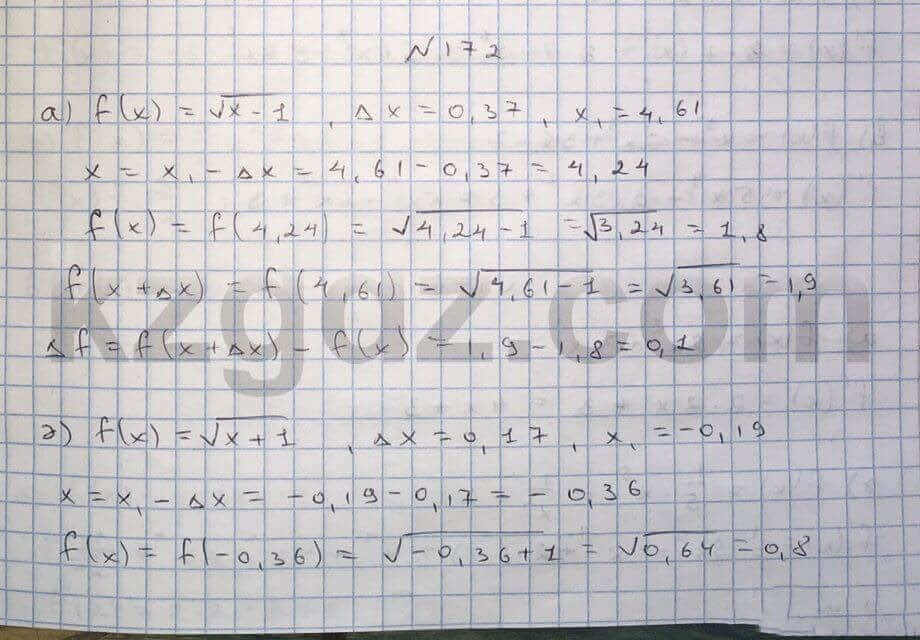 N172
а) f(x) = √x-1 , Δx = 0,37, x₁ = 4,61
x = x₁ - Δx = 4,61 - 0,37 = 4,24
f(x) = f(4,24) = √4,24-1 = √3,24 = 1,8
f(x+Δx) = f(4,61) = √4,61-1 = √3,61 = 1,9
kzgdz.com
Δf = f(x+Δx) - f(x) = 1,9 - 1,8 = 0,1
г) f(x) = √x+1 , Δx = 0,17, x₁ = -0,19
x = x₁ - Δx = -0,19 - 0,17 = - 0,36
f(x) = f(-0,36) = √-0,36+1 = √0,64 = 0,8